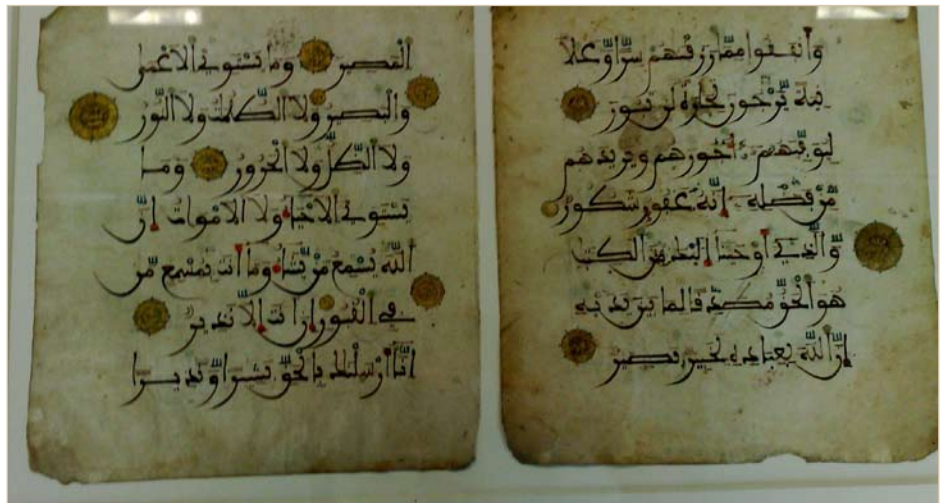 وَأَنفَقُوا مِمَّا رَزَقْنَهُمْ سِرًّا وَّعَلَا
نِيَةً يَّرْجُونَ تِجَرَةً لَّن تَبُورَ
لِيُوَفِّيَهُمْ أُجُورَهُمْ وَيَزِيدَهُم
مِّن فَضْلِهِ إِنَّهُ غَفُورٌ شَكُورٌ
وَالَّذِي أَوْحَيْنَا إِلَيْكَ مِنَ الْكِتَبِ
هُوَ الْحَقُّ مُصَدِّقًا لِّمَا بَيْنَ يَدَيْهِ
إِنَّ اللَّهَ بِعِبَادِهِ لَخَبِيرٌ بَصِيرٌ
الْمَصِيرُ وَمَا يَسْتَوِي الْأَعْمَى
وَالْبَصِيرُ وَلَا الظُّلُمَتُ وَلَا النُّورُ
وَلَا الظِّلُّ وَلَا الْحَرُورُ وَمَا
يَسْتَوِي الْأَحْيَاءُ وَلَا الْأَمْوَاتُ إِنَّ
اللَّهَ يُسْمِعُ مَنْ يَّشَاءُ وَمَا أَنتَ بِمُسْمِعٍ مَّن
فِي الْقُبُورِ إِنْ أَنتَ إِلَّا نَذِيرٌ
إِنَّا أَرْسَلْنَكَ بِالْحَقِّ بَشِيرًا وَّنَذِيرًا